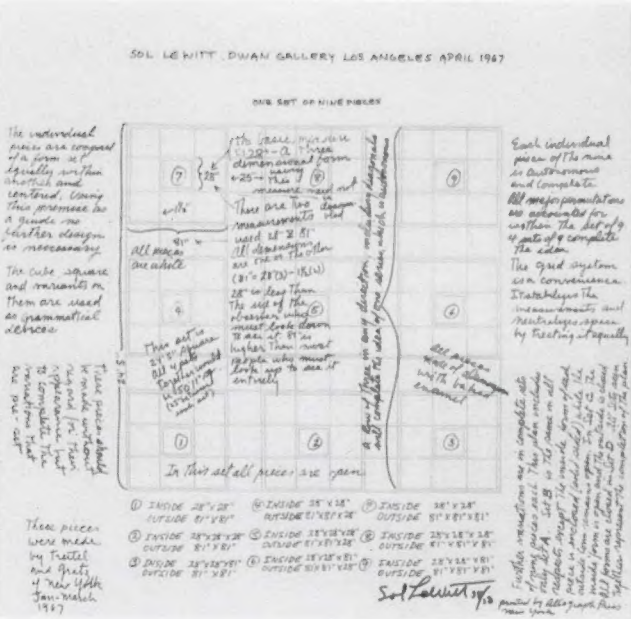 SOL LEWITT DWAN GALLERY LOS ANGELES APRIL 1967
ONE SET OF NINE PIECES
The individual
pieces are composed
of a form set
equally within
another and
centered. Using
this premise as
a guide no
further design
is necessary
The cube, square
and variants on
them are used
as grammatical
devices
These pieces should
be made without
regard for their
appearance but
to complete the
variations that
are pre-set
These pieces
were made
by Treitel
and Gratz
of New York
Jan-March
1967
7
28"
81"
all pieces
are whole
the basic measure
is 28" - a three
dimensional form
using this
measure need not
There are two
measurements used
used 28" & 81"
All dimensions
are one or the other
28" is less than
the size of the
observer who
must look down
to see it 81" is
higher than most
people who must
look up to see it
entirely
8
9
4
5
6
This set is
all 4 sets
together would
1
2
3
In this set all pieces are open
a line of three in any direction, including diagonals
will complete the idea of one series which is autonomous
all pieces
made of
with baked
enamel
Each individual
piece of the nine
is autonomous
and complete
All major permutations
are accounted for
within the set of 9
4 sets of 9 complete
the idea
The grid system
is a convenience
It stabilizes the
measurements and
neutralizes space
by treating it equally
Further variations are in complete sets
of nine pieces each. This plan includes
only Set A. Set B is the same in all
respects except the inside form of each
piece is closed (solid) while the
outside form remains open. In Set C the
inside form is open and the outside is closed
All forms are closed in Set D. All sets seen
together represent the completion of the plan
1 INSIDE 28"X28"
OUTSIDE 81"X81"
2 INSIDE 28"X28"X28"
OUTSIDE 81"X81"
3 INSIDE 28"X28"X81"
OUTSIDE 81"X81"
4 INSIDE 28"X28"
OUTSIDE 81"X81"X28"
5 INSIDE 28"X28"X28"
OUTSIDE 81"X81"X28"
6 INSIDE 28"X28"X81"
OUTSIDE 81"X81"X28"
7 INSIDE 28"X28"
OUTSIDE 81"X81"X81"
8 INSIDE 28"X28"X28"
OUTSIDE 81"X81"X81"
9 INSIDE 28"X28"X81"
OUTSIDE 81"X81"X81"
Sol Lewitt
printed by
New York